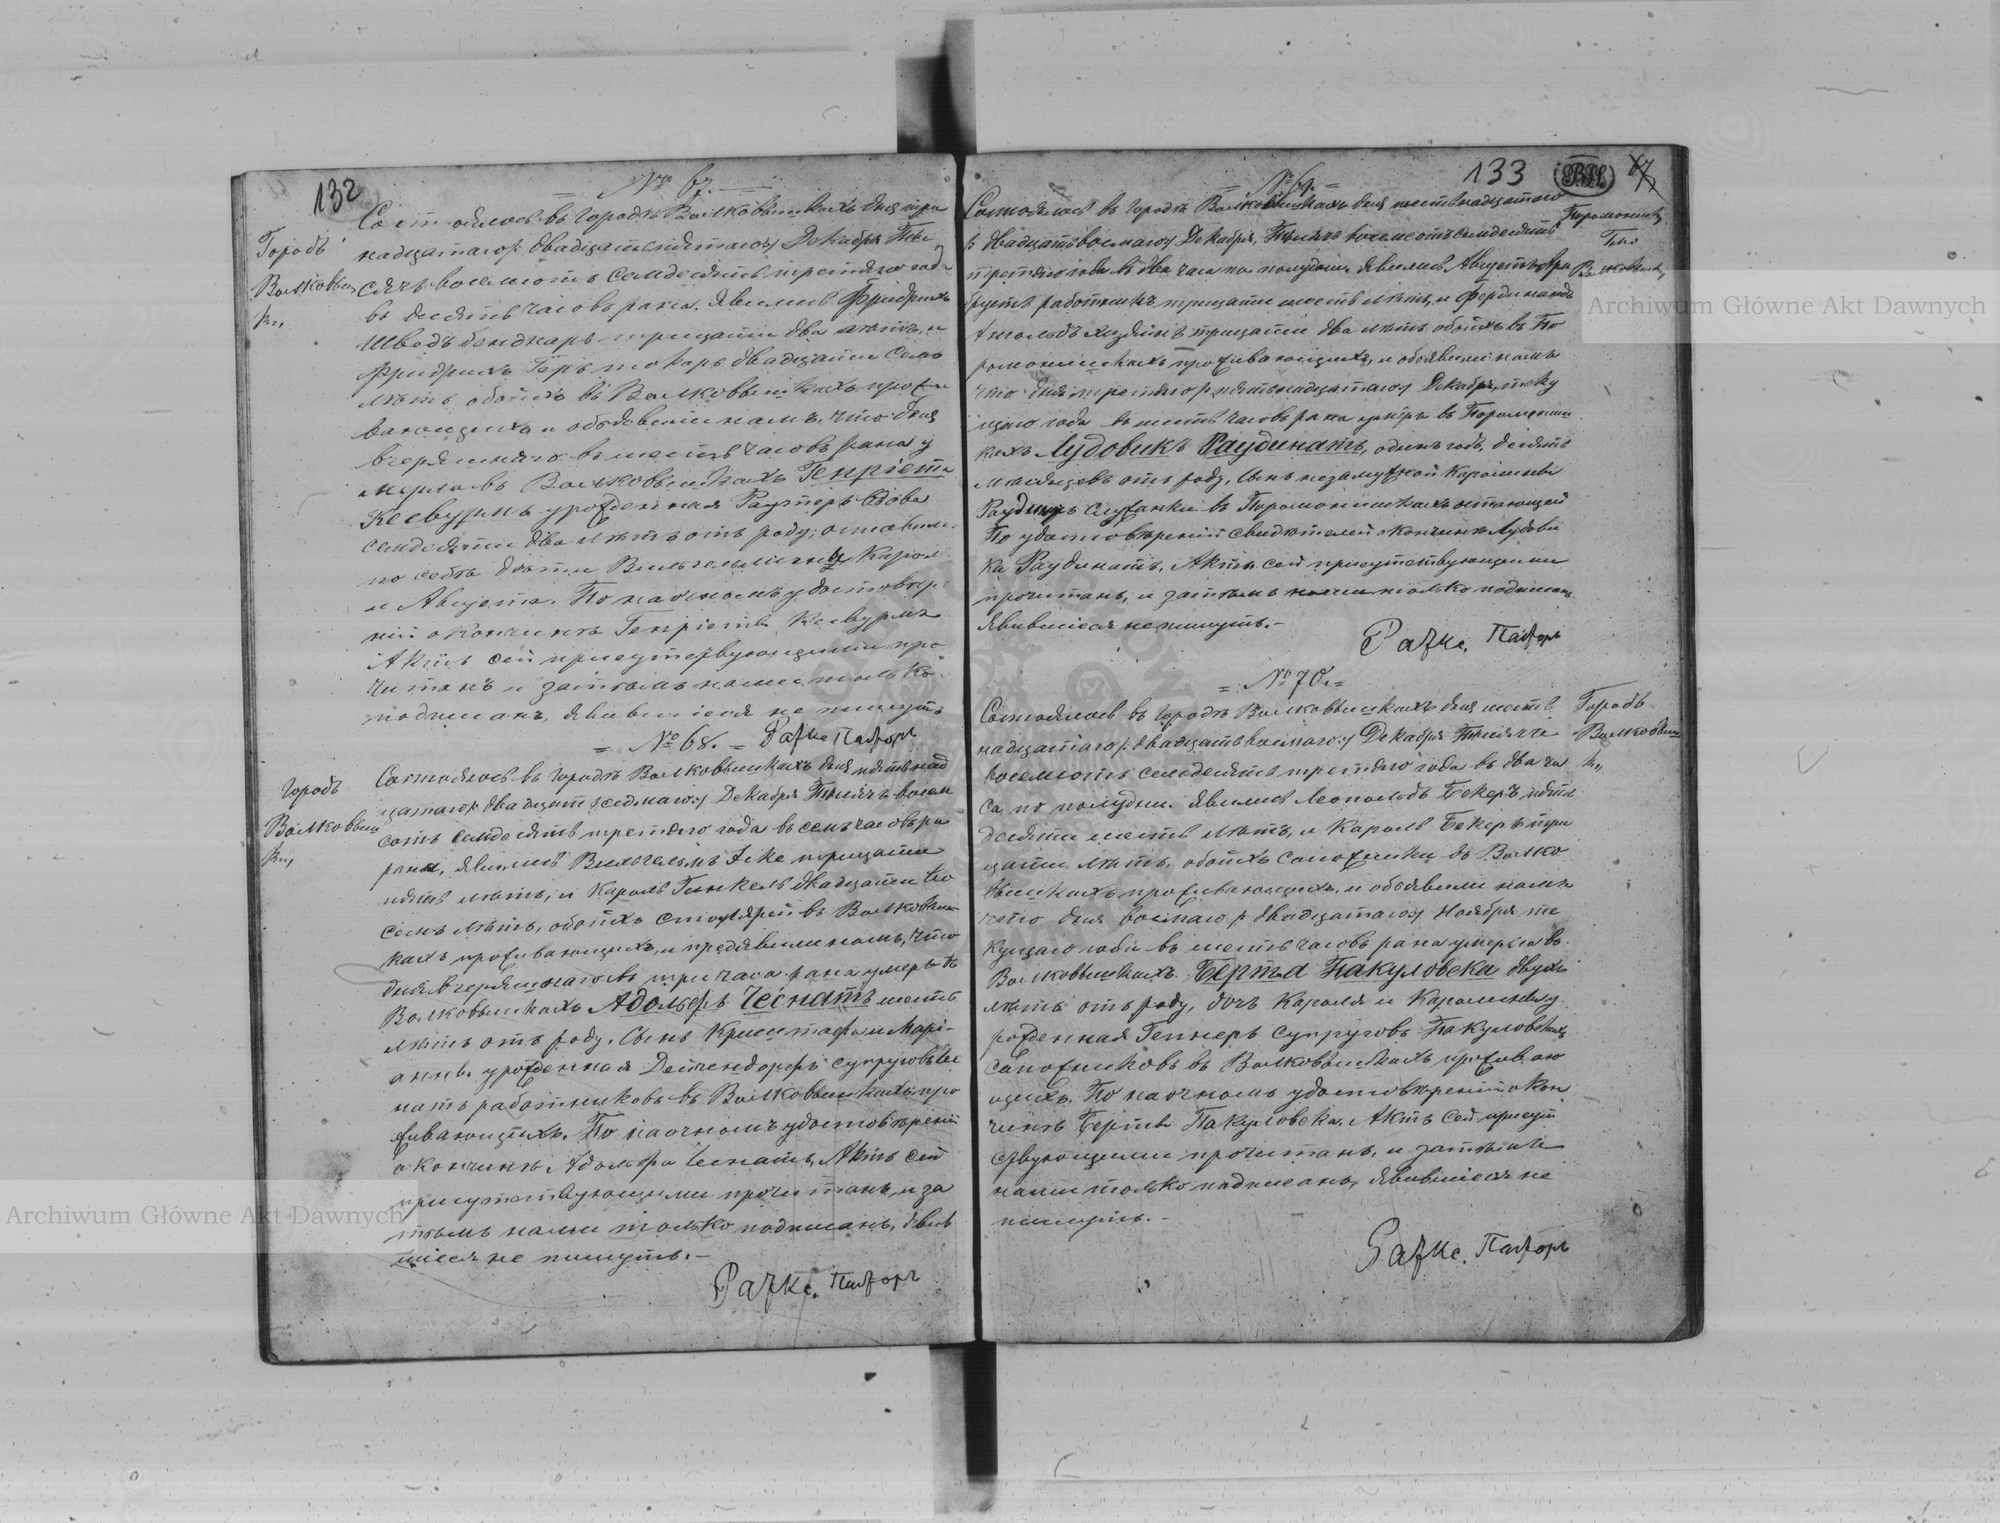 132
№ 67.
Городъ
Волковыш
ки,
Состоялось въ Городѣ Волковышкахъ дня три
надцатаго /: двадцатьпятаго :/ Декабря Тыс
сячъ восемьсотъ семдесятъ третьяго года
въ десять часовъ рана. Явились Фридрихъ
Шведъ бенднаръ тридцати два лѣтъ, и
Фридрихъ Геръ токаръ двадцати семь
лѣтъ обоихъ въ Волковышкахъ прожи
вающихъ и объявили намъ, что дня
вчерашняго въ шесть часовъ рана у
мерла въ Волковышкахъ Генріета
Кесвурмъ урожденная Раутеръ вдова
семдесяти два лѣтъ отъ роду, оставила
по себѣ дѣти Вильгельмину, Кароля
и Августа. По наочномъ удостовѣре
ніи о кончинѣ Генріеты Кесвурмъ
Актъ сей присутствующими про
читанъ и затѣмъ нами только
подписанъ, явившіеся не пишутъ
Рачке Пасторъ
= № 68. =
Городъ
Волковыш
ки,
Состоялось въ городѣ Волковышкахъ дня пятьнад
цатаго /: двадцать седмаго :/ Декабря Тысячъ восем
сотъ семдесятъ третьяго года въ семь часовъ ра
рана, явились Вильгельмъ Іеке тридцати
пять лѣтъ, и Кароль Гинкель двадцати во
семь лѣтъ, обоихъ столярей въ Волковыш
кахъ проживающихъ, и предявили намъ, что
дня вчерашнаго въ три часа рана умеръ въ
Волковышкахъ Адольфъ Чеснатъ шесть
лѣтъ отъ роду, сынъ Криштофа и Марі-
анны урожденная Дейчендорфъ супруговъ Чес
натъ работниковъ въ Волковышкахъ про
живающихъ. По наочномъ удостовѣреніи
о кончинѣ Адольфа Чеснатъ, Актъ сей
присутствующими прочитанъ, и за
тѣмъ нами только подписанъ, явив
шіеся не пишутъ. -
Рачке. Пасторъ
133
= № 69. =
Поромонишки
Гмо
Волковышк,
Состоялось въ городѣ Волковышкахъ дня шестьнадцатаго
/: двадцатьвосмаго :/ Декабря, Тысячъ восемсотъ семдесятъ
третяго года въ два часа по полудни. Явились Августъ
работникъ тридцати шесть лѣтъ, и Фердинандъ
хозяинъ тридцати два лѣтъ обоихъ въ По
ромонишкахъ проживающихъ, и объявили намъ
что дня третяго /: пятьнадцатаго :/ Декабря, теку
щаго года въ шесть часовъ рана умеръ въ Поромониш
кахъ Лудовикъ Раудинатъ, одинъ годъ, десять
мѣсяцевъ отъ роду, сынъ незамужной Каролины
Раудинъ служанки въ Поромонишкахъ
По удостовѣреніи свидѣтелей о кончинѣ Лудови
ка Раудинатъ, Актъ сей присутствующими
прочитанъ, и затѣмъ нами только подписанъ
Явившіеся не пишутъ. -
Рачке. Пасторъ
= № 70. =
Городъ
Волковыш
ки,
Состоялось въ городѣ Волковышкахъ дня шесть
надцатаго /: двадцатьвосмаго :/ Декабря Тысячъ
восемьсотъ семдесятъ третяго года въ два ча
са по полудни. Явились Леопольдъ Бекеръ пяти
десяти шесть лѣтъ, и Кароль Бекеръ три
цати лѣтъ, обоихъ сапожники въ Волко
вышкахъ проживающихъ, и объявили намъ
что дня восмаго /: двадцатаго :/ Ноября те
кущаго года въ шесть часовъ рана умерла въ
Волковышкахъ Берта Пакуловска двухъ
лѣтъ отъ роду, дочъ Кароля и Каролины у
рожденная Геннеръ супруговъ Пакуловскихъ
сапожниковъ въ Волковышкахъ проживаю
щихъ. По наочномъ удостовѣреніи о кон
чинѣ Берты Пакуловска, Актъ сей присут
ствующими прочитанъ, и затѣмъ
нами только подписанъ, явившіеся не
пишутъ. -
Рачке. Пасторъ
Archiwum Główne Akt Dawnych
Archiwum Główne Akt Dawnych